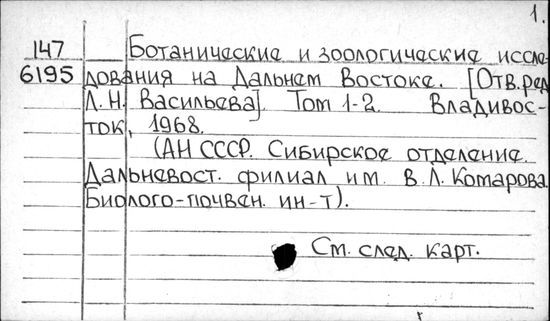 1.
147 Ботанические и зоологические иссле-
6195 дования на Дальнем Востоке. [Отв. ред.
Л. Н. Васильева]. Том 1-2. Владивос-
ток, 1968.
(АН СССР. Сибирское отделение.
Дальневост. филиал им. В. Л. Комарова.
Биолого-почвен. ин-т).
См. след. карт.